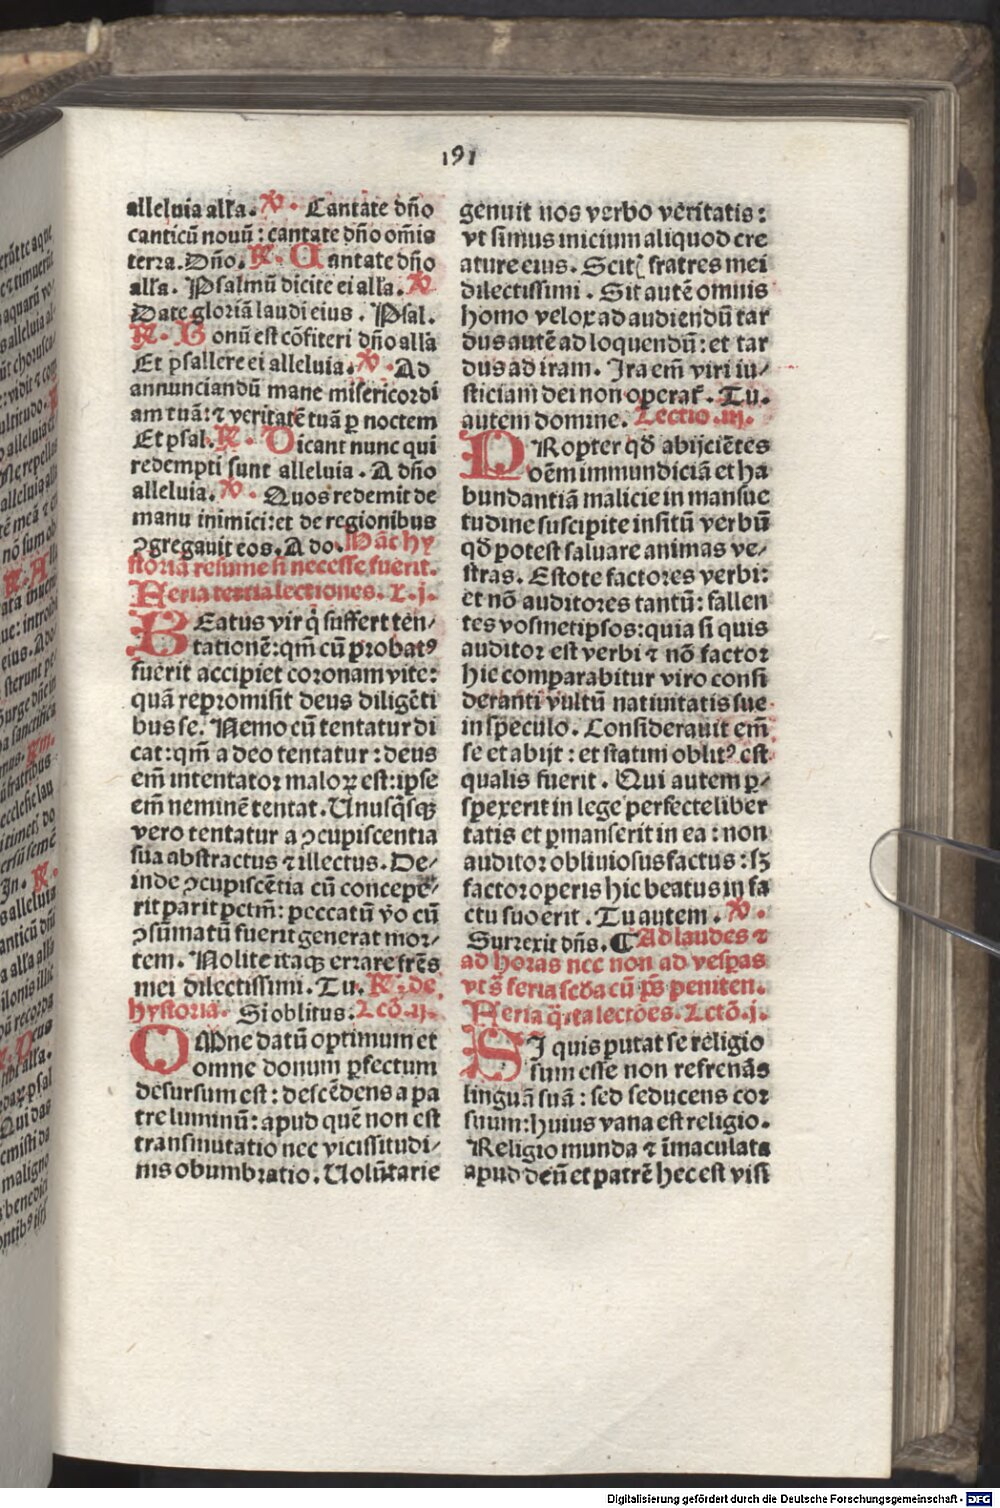 191
alleluia alľa. ℣. Cantate dño
canticū nouū : cantate dño om̄is
terra. Dño. ℟. Cantate dño
alľa. Psalmū dicite ei alľa. ℣
Date gloriā laudi eius. Psal.
℟. Bonū est cōfiteri dño alľa
Et psallere ei alleluia. ℣. Ad
annunciandū mane misericordi
am tuā: ⁊ veritatē tuā ꝑ noctem
Et psal. ℟. Dicant nunc qui
redempti sunt alleluia. A dño
alleluia. ℣. Quos redemit de
manu inimici: et de regionibus
ↄgregauit eos. A do. Hāc hy
storiā resume si necesse fuerit.
Feria tertia lectiones. L. j.
BEatus vir q̇ suffert ten⸗
tationē: qm̄ cū probatꝰ
fuerit accipiet coronam vite:
quā repromisit deus diligēti
bus se. Nemo cū tentatur di
cat: qm̄ a deo tentatur : deus
em̄ intentator maloꝝ est: ipse
em̄ neminē tentat. Unusq̇sqꝫ
vero tentatur a ↄcupiscentia
sua abstractus ⁊ illectus. De⸗
inde ↄcupiscētia cū concepe⸗
rit parit pctm̄: peccatū v̄o cū
ↄsūmatū fuerit generat mor⸗
tem. Nolite itaqꝫ errare fr̄es
mei dilectissimi. Tu. ℟. de
hystoria. Si oblitus. Lcō. ij.
OMne datū optimum et
omne donum ꝑfectum
desursum est : descēdens a pa
tre luminū: apud quē non est
transmutatio nec vicissitudi⸗
nis obumbratio. Uolūtarie
genuit nos verbo veritatis:
vt simus inicium aliquod cre
ature eius. Scit͛ fratres mei
dilectissimi. Sit autē omnis
homo velox ad audiendū tar
dus autē ad loquendū: et tar
dus ad iram. Ira em̄ viri iu⸗
sticiam dei non operat͛. Tu.
autem domine. Lectio. iij.
PRopter qđ abijciētes
oēm immundiciā et ha
bundantiā malicie in mansue
tudine suscipite insitū verbū
qđ potest saluare animas ve⸗
stras. Estote factores verbi:
et nō auditores tantū: fallen
tes vosmetipsos: quia si quis
auditor est verbi ⁊ nō factor
hic comparabitur viro consi
deranti vultū natiuitatis sue
in speculo. Considerauit em̄
se et abijt : et statim oblitꝰ est
qualis fuerit. Qui autem ꝑ⸗
spexerit in lege perfecte liber
tatis et ꝑmanserit in ea : non
auditor obliuiosus factus : sꝫ
factor operis hic beatus in fa
ctu suo erit. Tu autem. ℣.
Surrexit dñs. ¶ Ad laudes ⁊
ad horas nec non ad vesꝑas
vt s̄ feria scđa cū p̄s peniten.
Feria q̇rta lectōes. Lctō. j.
SI quis putat se religio
sum esse non refrenās
linguā suā : sed seducens cor
suum: huius vana est religio.
Religio munda ⁊ īmaculata
apud deū et patrē hec est visi
Digitalisierung gefördert durch die Deutsche Forschungsgemeinschaft - DFG